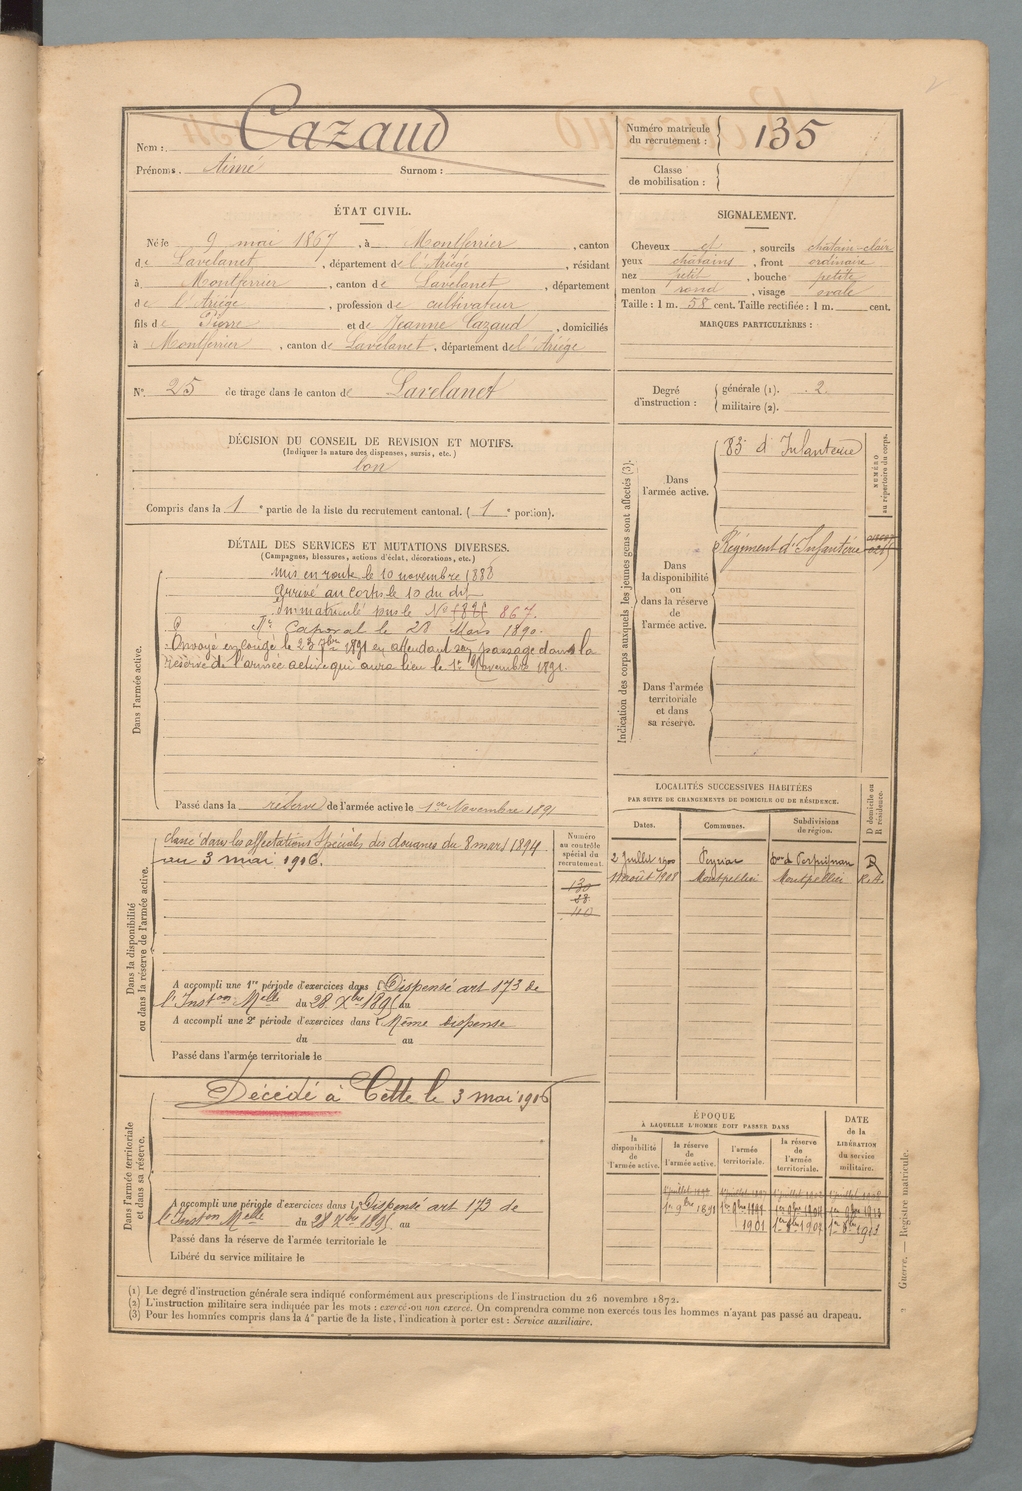 Nom : Cazaud
Prénoms. Aimé Surnom :
Numéro matricule du recrutement : 135
Classe de mobilisation :
ÉTAT CIVIL.
Né le 9 mai 1867, à Montferrier, canton
de Lavelanet, département de l'Ariège, résidant
à Montferrier, canton de Lavelanet, département
de l'Ariège, profession de cultivateur
fils de Pierre et de Jeanne Cazaud, domiciliés
à Montferrier, canton de Lavelanet, département de l'Ariège
N°. 25 de tirage dans le canton de Lavelanet
SIGNALEMENT.
Cheveux et, sourcils châtain-clair
yeux châtains, front ordinaire
nez petit, bouche petite
menton rond, visage ovale
Taille : 1 m. 58 cent. Taille rectifiée : 1 m. cent.
MARQUES PARTICULIÈRES :
Degré d'instruction : générale (1). 2
militaire (2).
DÉCISION DU CONSEIL DE REVISION ET MOTIFS.
(Indiquer la nature des dispenses, sursis, etc.)
bon
Compris dans la 1e partie de la liste du recrutement cantonal. (1e portion).
DÉTAIL DES SERVICES ET MUTATIONS DIVERSES.
(Campagnes, blessures, actions d'éclat, décorations, etc.)
Dans l'armée active.
Mis en route le 10 novembre 1888
Arrivé au corps le 10 du dit
Immatriculé sous le N° 867.
Caporal le 28 Mars 1890.
Envoyé en congé le 23 7bre 1891 en attendant son passage dans la
réserve de l'armée active qui aura lieu le 1er Novembre 1891.
Passé dans la réserve de l'armée active le 1er Novembre 1891
Indication des corps auxquels les jeunes gens sont affectés (3).
Dans l'armée active.
83e d'Infanterie
NUMÉRO au répertoire du corps.
Dans la disponibilité ou dans la réserve de l'armée active.
Régiment d'Infanterie
Dans l'armée territoriale et dans sa réserve.
LOCALITÉS SUCCESSIVES HABITÉES
PAR SUITE DE CHANGEMENTS DE DOMICILE OU DE RÉSIDENCE.
D domicile ou R résidence.
Dates. Communes. Subdivisions de région.
2 Juillet 1900 Peyriac Perpignan D
août Montpellier Montpellier
Dans la disponibilité ou dans la réserve de l'armée active.
Classé dans les affectations Spéciales des douanes du 8 mars 1894
au 3 mai 1906.
Numéro au contrôle spécial du recrutement.
130
83
110
A accompli une 1re période d'exercices dans Dispensé art 173 de
l'Inston Melle du 28 Xbre 1895 au
A accompli une 2e période d'exercices dans Même dispense
du au
Passé dans l'armée territoriale le
Dans l'armée territoriale et dans sa réserve.
Décédé à Cette le 3 mai 1906
A accompli une période d'exercices dans Dispensé art 173 de
l'Inston Melle du 28 Xbre 1895 au
Passé dans la réserve de l'armée territoriale le
Libéré du service militaire le
ÉPOQUE
À LAQUELLE L'HOMME DOIT PASSER DANS
la disponibilité de l'armée active.
la réserve de l'armée active.
l'armée territoriale.
la réserve de l'armée territoriale.
DATE de la LIBÉRATION du service militaire.
1er 9bre 1891
1901 1907 1913
Guerre. — Registre matricule.
(1) Le degré d'instruction générale sera indiqué conformément aux prescriptions de l'instruction du 26 novembre 1872.
(2) L'instruction militaire sera indiquée par les mots : exercé ou non exercé. On comprendra comme non exercés tous les hommes n'ayant pas passé au drapeau.
(3) Pour les hommes compris dans la 4e partie de la liste, l'indication à porter est : Service auxiliaire.